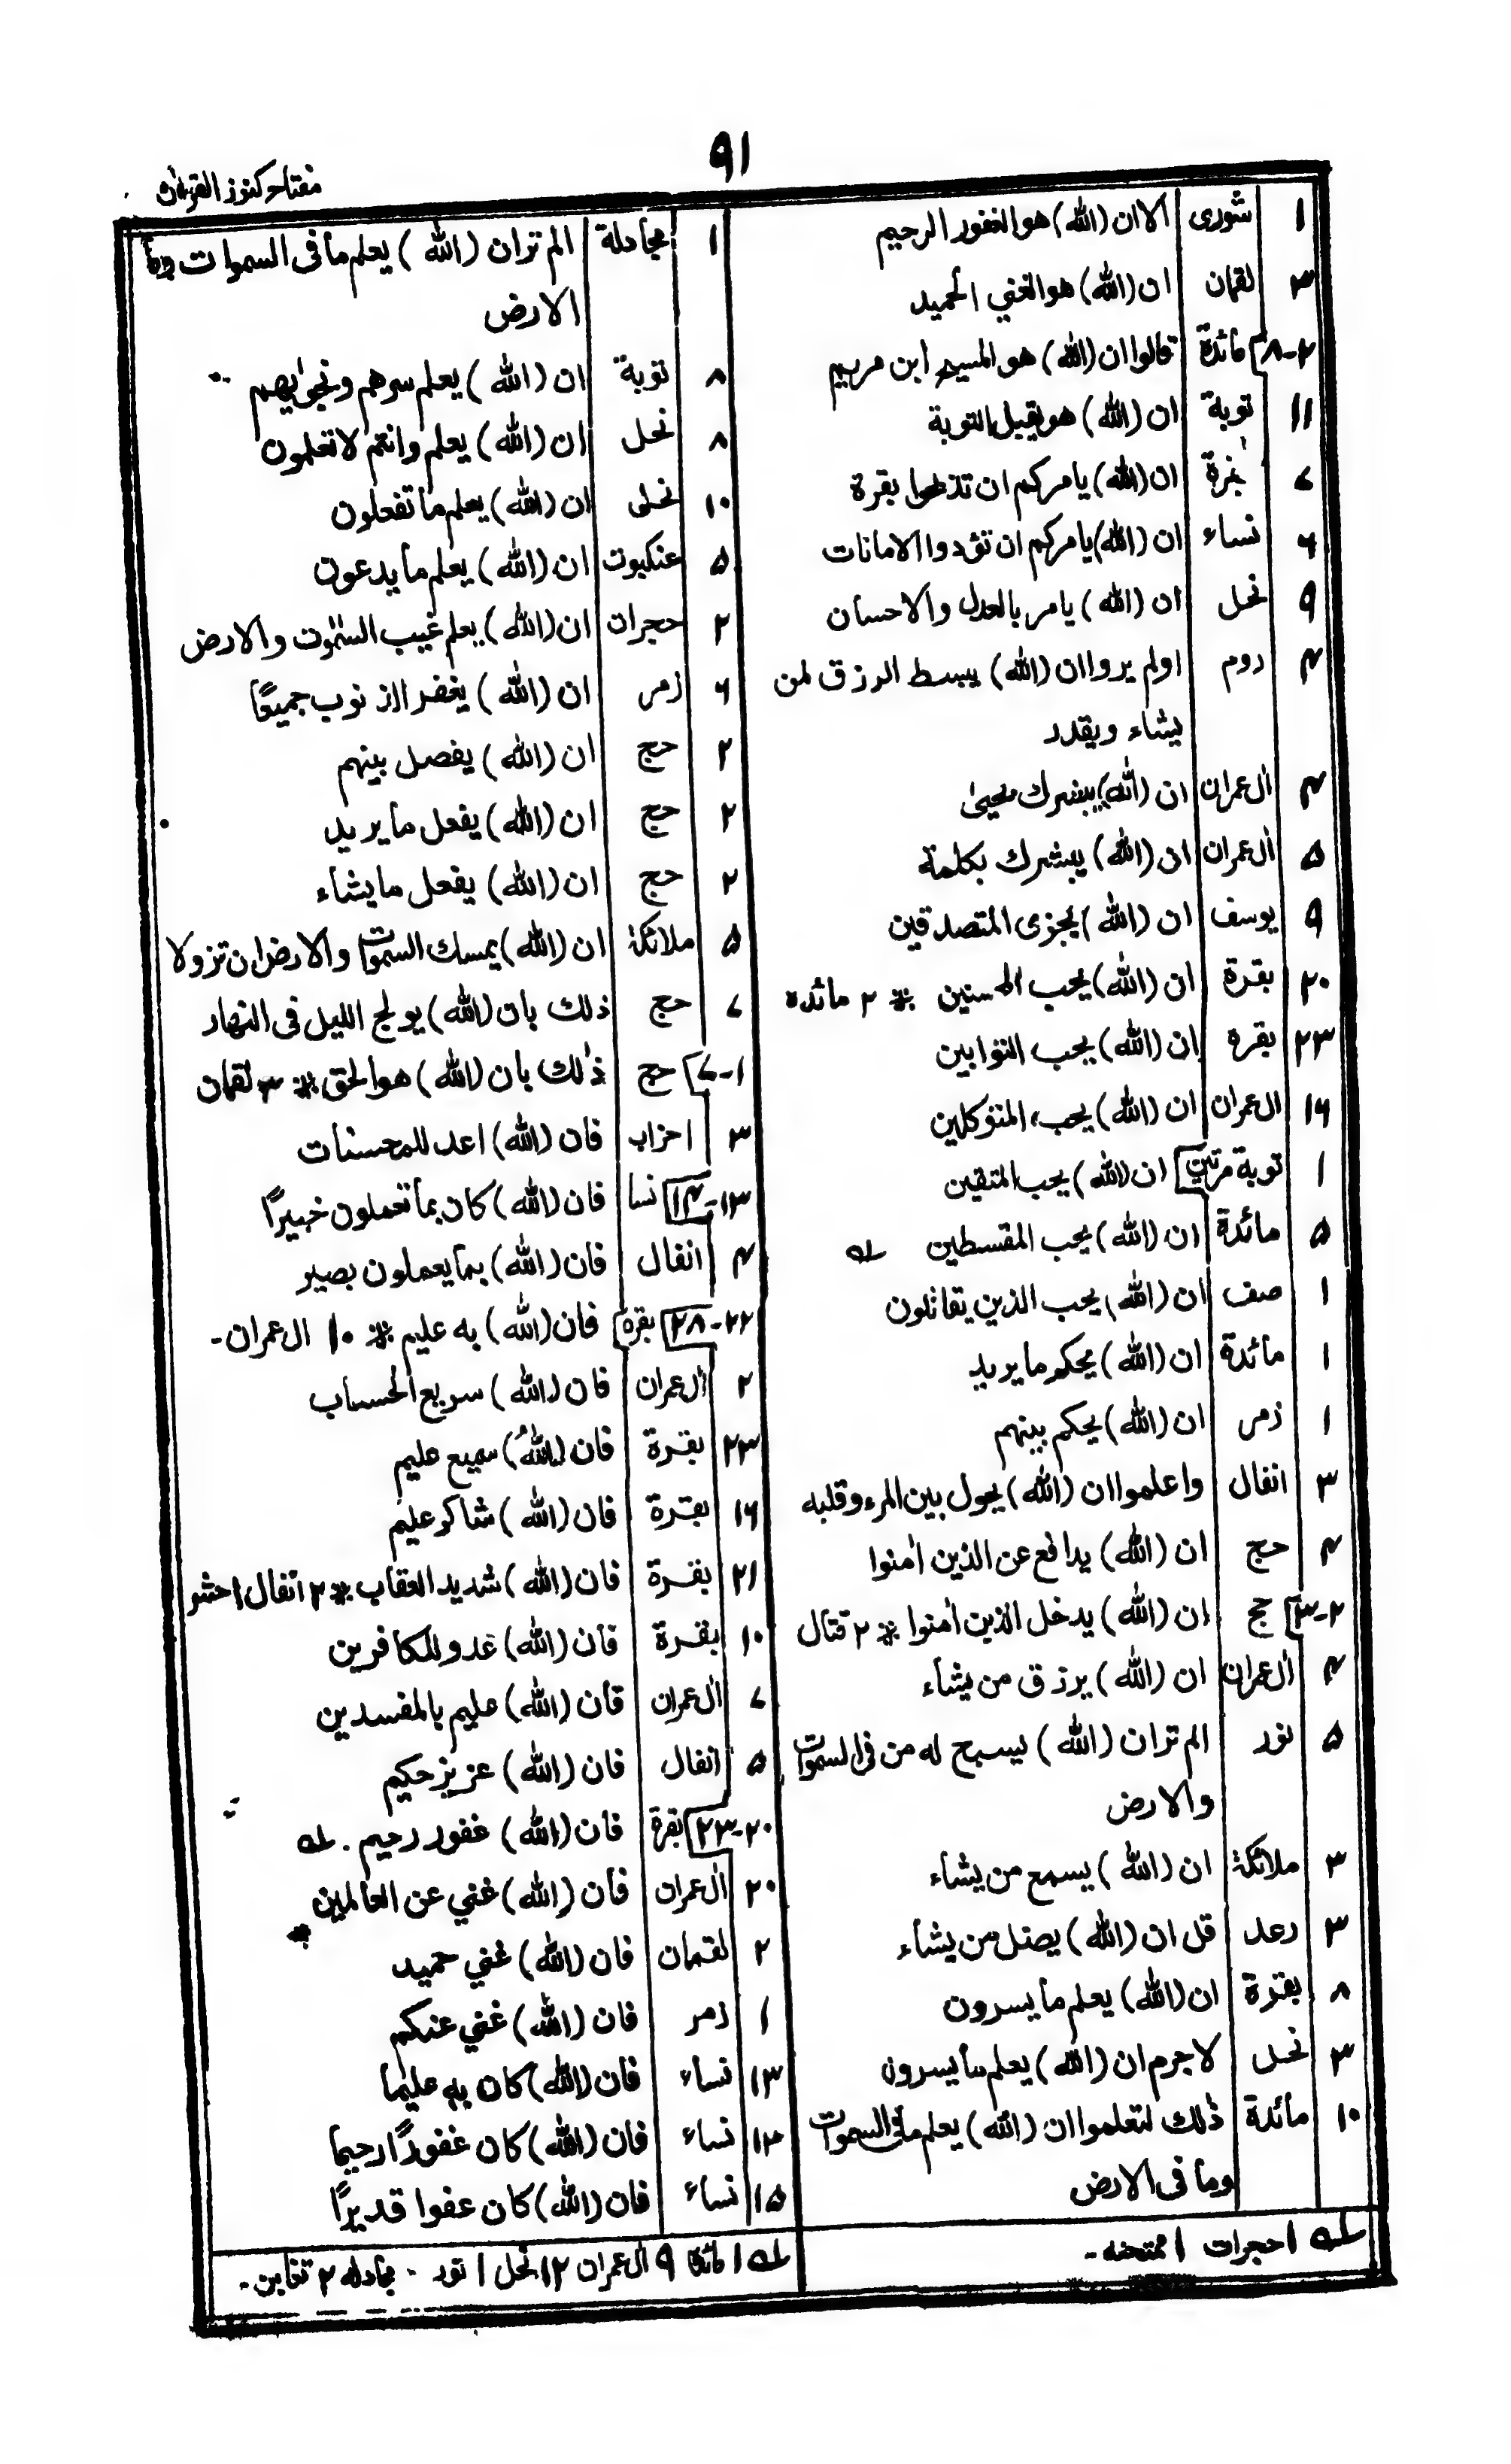 ٩١
مفتاح كنوز القرآن
١ شورى الا ان (الله) هو الغفور الرحيم
٣ لقمان ان (الله) هو الغني الحميد
٢-٨ مائدة قالوا ان (الله) هو المسيح ابن مريم
١١ توبة ان (الله) هو يقبل التوبة
٧ بقرة ان (الله) يامركم ان تذبحوا بقرة
٦ نساء ان (الله) يامركم ان تؤدوا الامانات
٩ نحل ان (الله) يامر بالعدل والاحسان
٤ روم اولم يروا ان (الله) يبسط الرزق لمن
يشاء ويقدر
٤ اٰل عمران ان (الله) يبشرك بيحيىٰ
٥ اٰل عمران ان (الله) يبشرك بكلمة
٩ يوسف ان (الله) يجزى المتصدقين
٢٠ بقرة ان (الله) يحب المحسنين ※ ٢ مائده
٢٣ بقره ان (الله) يحب التوابين
١٦ ال عمران ان (الله) يحب المتوكلين
١ توبة مرتين ان (الله) يحب المتقين
٥ مائدة ان (الله) يحب المقسطين ـلـه
١ صف ان (الله) يحب الذين يقاتلون
١ مائدة ان (الله) يحكم ما يريد
١ زمر ان (الله) يحكم بينهم
٣ انفال واعلموا ان (الله) يحول بين المرء وقلبه
٤ حج ان (الله) يدافع عن الذين اٰمنوا
٢-٣ حج ان (الله) يدخل الذين اٰمنوا ※ ٢ قتال
٤ اٰل عمران ان (الله) يرزق من يشاء
٥ نور الم تر ان (الله) يسبح له من فى السمٰوات
والارض
٣ ملائكة ان (الله) يسمع من يشاء
٣ رعد قل ان (الله) يضل من يشاء
٨ بقرة ان (الله) يعلم ما يسرون
٣ نحل لا جرم ان (الله) يعلم ما يسرون
١٠ مائدة ذٰلك لتعلموا ان (الله) يعلم ما فى السموات
وما فى الارض
ـلـه ١ حجرات ١ ممتحنه -
١ مجادلة الم تر ان (الله) يعلم ما فى السموات وما
الارض
٨ توبة ان (الله) يعلم سرهم ونجواٮهم
٨ نحل ان (الله) يعلم وانتم لا تعلمون
١٠ نحل ان (الله) يعلم ما تفعلون
٥ عنكبوت ان (الله) يعلم ما يدعون
٢ حجرات ان (الله) يعلم غيب السمٰوت والارض
٦ زمر ان (الله) يغفر الذنوب جميعًا
٢ حج ان (الله) يفصل بينهم
٢ حج ان (الله) يفعل ما يريد
٢ حج ان (الله) يفعل ما يشاء
٥ ملائكة ان (الله) يمسك السمٰوات والارض ان تزولا
٧ حج ذلك بان (الله) يولج الليل فى النهار
١-٧ حج ذٰلك بان (الله) هو الحق ※ ٣ لقمان
٣ احزاب فان (الله) اعد للمحسنات
١٣-١٤ نسا فان (الله) كان بما تعملون خبيرًا
٤ انفال فان (الله) بما يعملون بصير
٢٢-٢٨ بقرة فان (الله) به عليم ※ ١٠ ال عمران -
٢ اٰل عمران فان (الله) سريع الحساب
٢٣ بقرة فان (اللهُ) سميع عليم
١٦ بقرة فان (الله) شاكر عليم
٢١ بقرة فان (الله) شديد العقاب ※ ٢ انفال ١ حشر
١٠ بقرة فان (الله) عدو للكافرين
٧ اٰل عمران فان (الله) عليم بالمفسدين
٥ انفال فان (الله) عزيز حكيم
٢٠-٢٣ بقرة فان (الله) غفور رحيم . ـلـه
٢٠ اٰل عمران فان (الله) غني عن العالمين
٢ لقمان فان (الله) غني حميد
١ زمر فان (الله) غني عنكم
١٣ نساء فان (الله) كان به عليمًا
١٣ نساء فان (الله) كان غفورًا رحيما
١٥ نساء فان (الله) كان عفوا قديرًا
ـلـه ١ مائدة ٩ اٰل عمران ١٢ نحل ١ نور . مجادله ٢ تغابن -